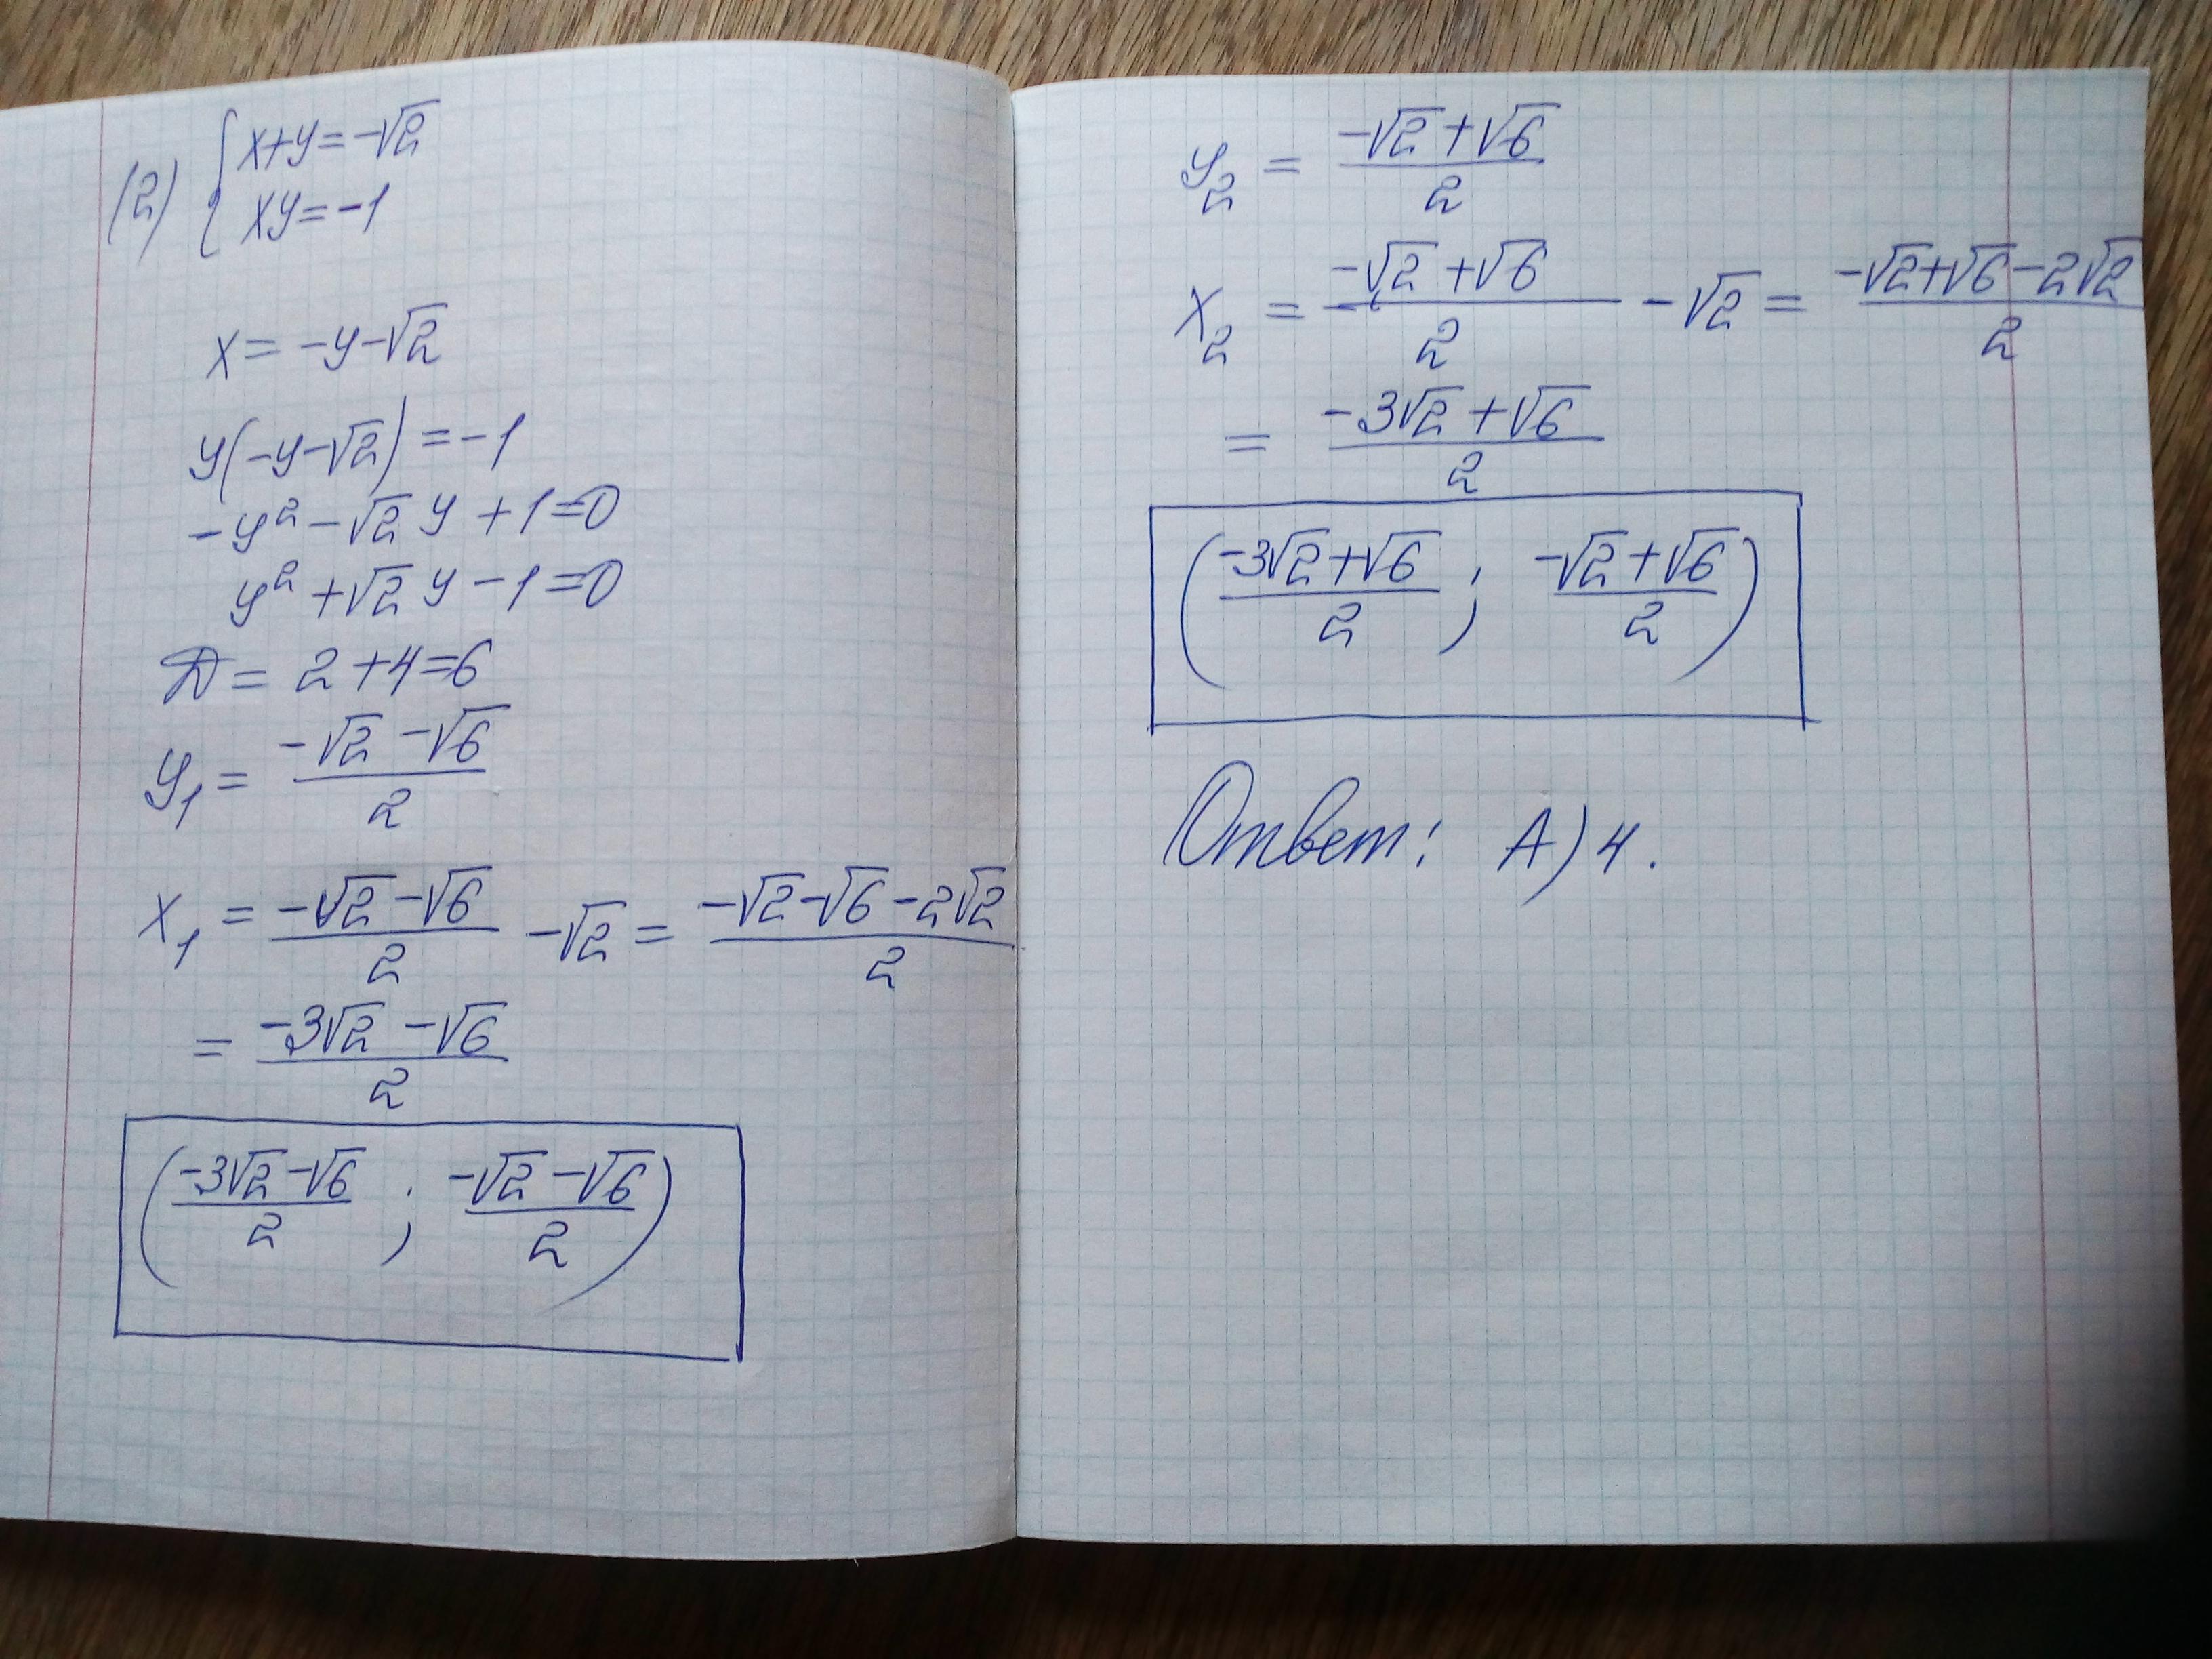 (2) { x+y=-√2
xy=-1
x= -y-√2
y(-y-√2)=-1
-y²-√2 y +1=0
y²+√2 y -1=0
D= 2+4=6
y₁= (-√2 -√6)/2
x₁ = (-√2-√6)/2 -√2= (-√2-√6-2√2)/2
= (-3√2 -√6)/2
((-3√2-√6)/2 ; (-√2-√6)/2)
y₂ = (-√2+√6)/2
x₂ = (-√2+√6)/2 -√2= (-√2+√6-2√2)/2
= (-3√2+√6)/2
((-3√2+√6)/2 ; (-√2+√6)/2)
Ответ: А) 4.